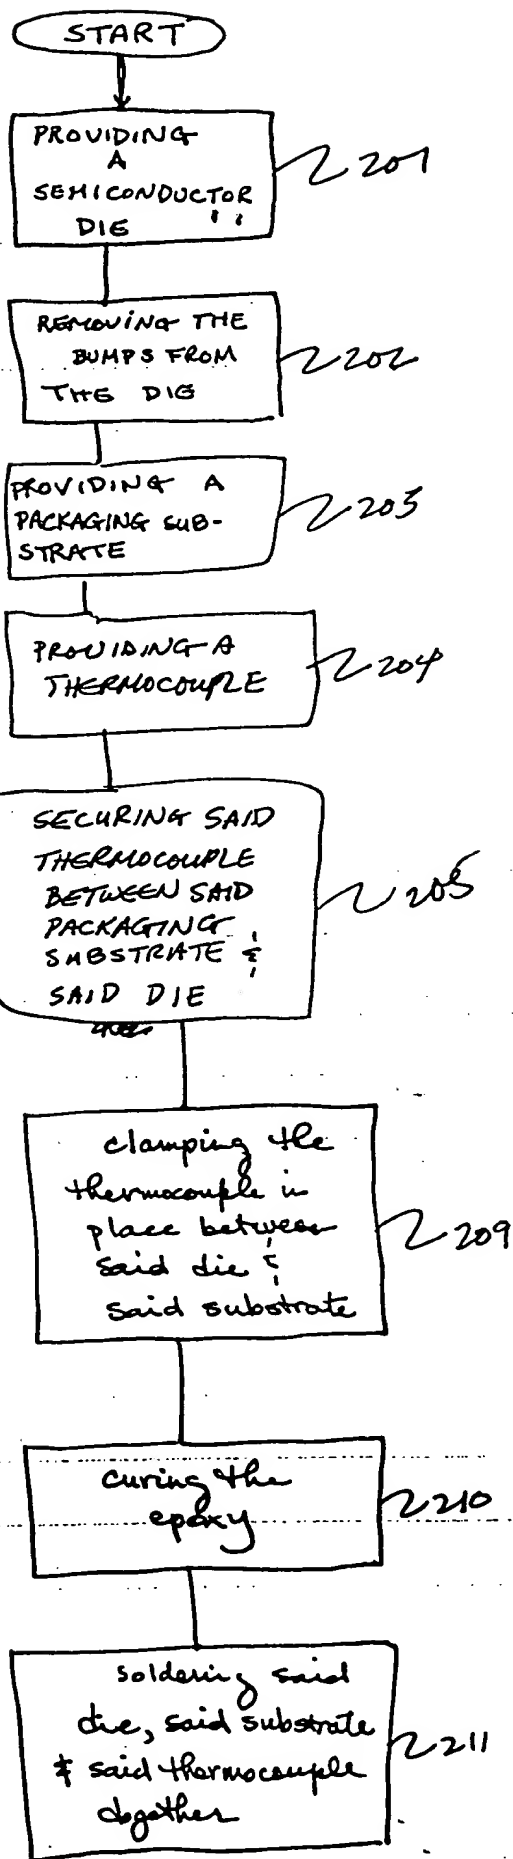 START
PROVIDING
A
SEMICONDUCTOR
DIE
201
REMOVING THE
BUMPS FROM
THE DIE
202
PROVIDING A
PACKAGING SUB-
STRATE
203
PROVIDING A
THERMOCOUPLE
204
SECURING SAID
THERMOCOUPLE
BETWEEN SAID
PACKAGING
SUBSTRATE &
SAID DIE
205
clamping the
thermocouple in
place between
said die &
said substrate
209
curing the
epoxy
210
soldering said
die, said substrate
& said thermocouple
together
211